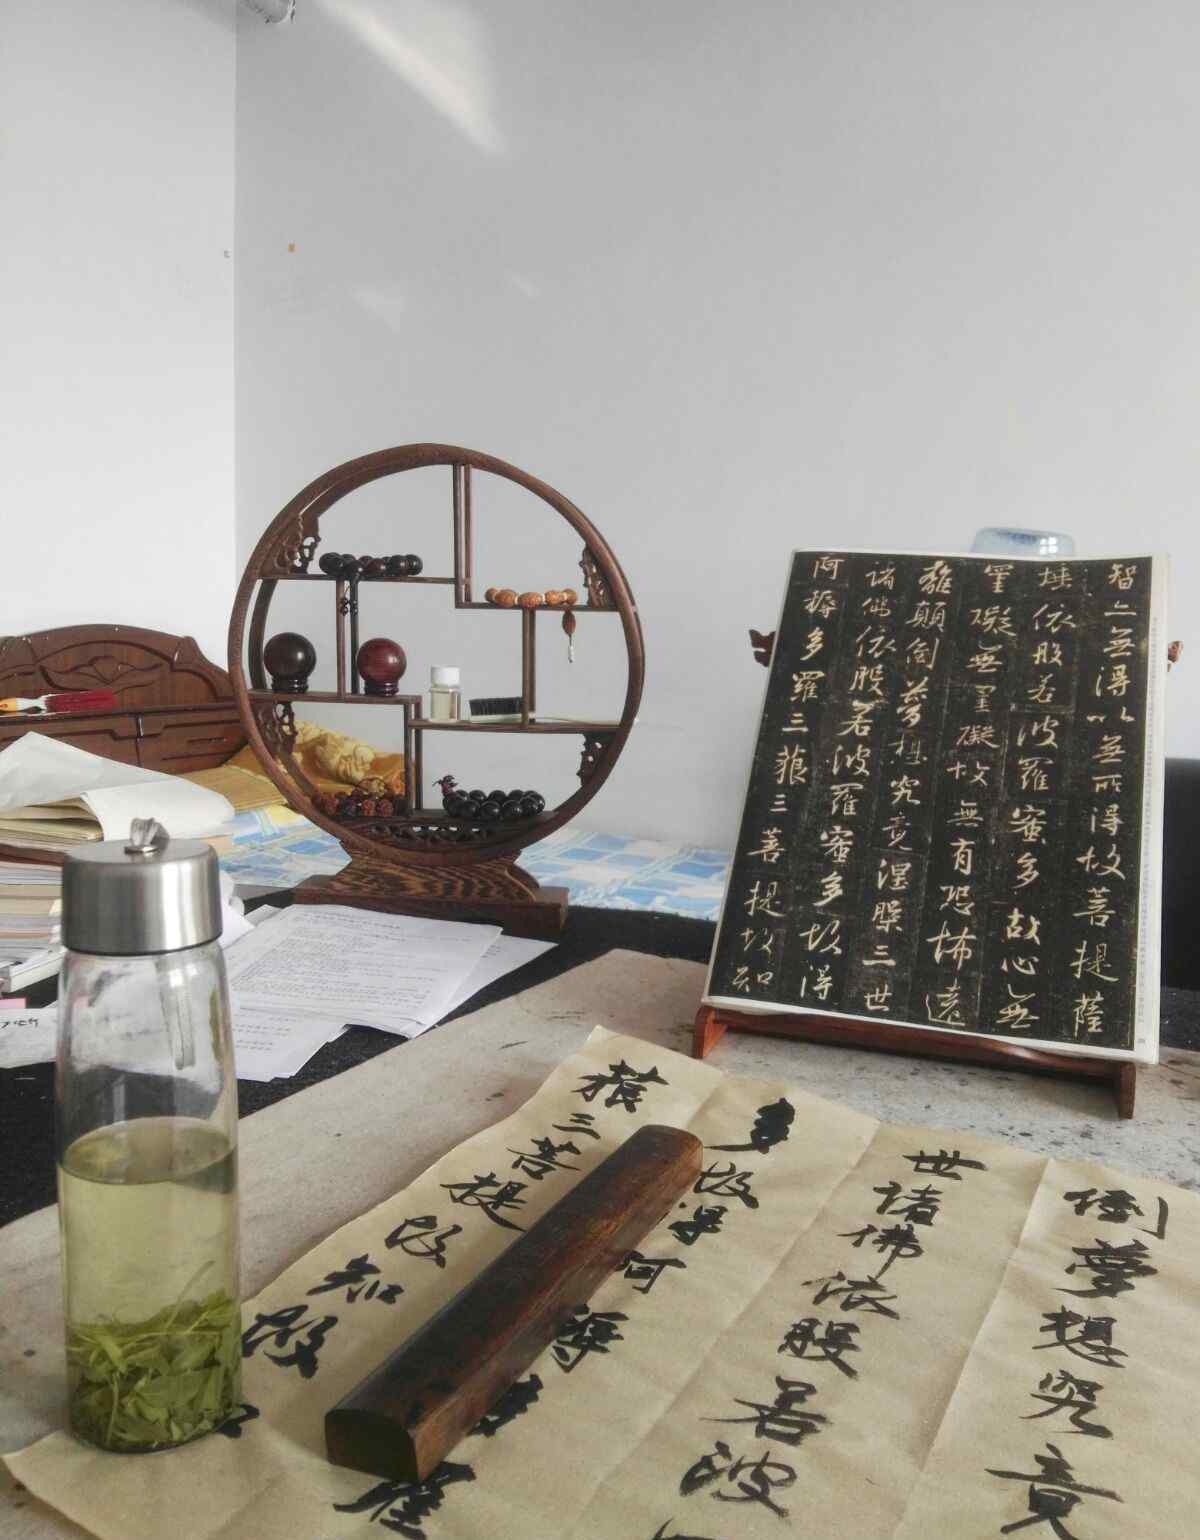 智亦無得以無所得故菩提薩
埵依般若波羅蜜多故心無
罣礙無罣礙故無有恐怖遠
離顛倒夢想究竟涅槃三世
諸佛依般若波羅蜜多故得
阿耨多羅三藐三菩提故知
倒夢想究竟
世諸佛依般若波
多故得阿耨多羅
藐三菩提故知故